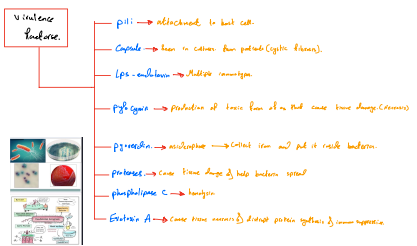 Virulence
factors.
pili → attachment to host cell.
Capsule → Seen in culture from patients (cystic fibrosis).
Lps - endotoxin → Multiple immunotypes.
pyocyanin → production of toxic form of O₂ that cause tissue damage. (necrosis)
pyoverdin. → siderophore → Collect iron and put it inside bacteria.
proteases. → cause tissue damage & help bacteria spread
phospholipase C → hemolysin
Exotoxin A → Cause tissue necrosis & disrupt protein synthesis & immunosuppressive